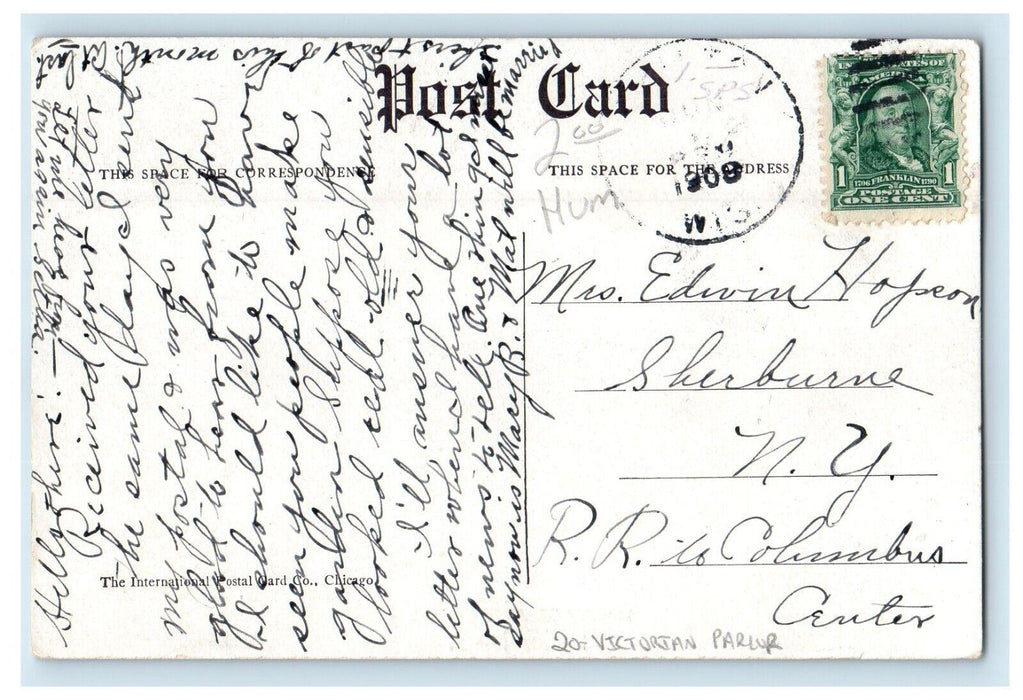 Post Card
THIS SPACE FOR CORRESPONDENCE
THIS SPACE FOR THE ADDRESS
1908
2.00
HUM
SPS
UNITED STATES OF
AMERICA
1706 FRANKLIN 1790
POSTAGE
1 ONE CENT 1
Mrs. Edwin Hopson
Sherburne
N. Y.
R. R. to Columbus
Center
Hello there! —
Received your letter
the same day I sent
my postal & was very
glad to hear from you
I should like to have
seen you people make
garden. I suppose you
looked real old & sensible
I'll answer your
letter when I have lot
of news to tell. One thing
say now is Mary B. & Mat will be married
first part of this month.
Let me hear from
you again
The International Postal Card Co., Chicago.
20- VICTORIAN PARLOR